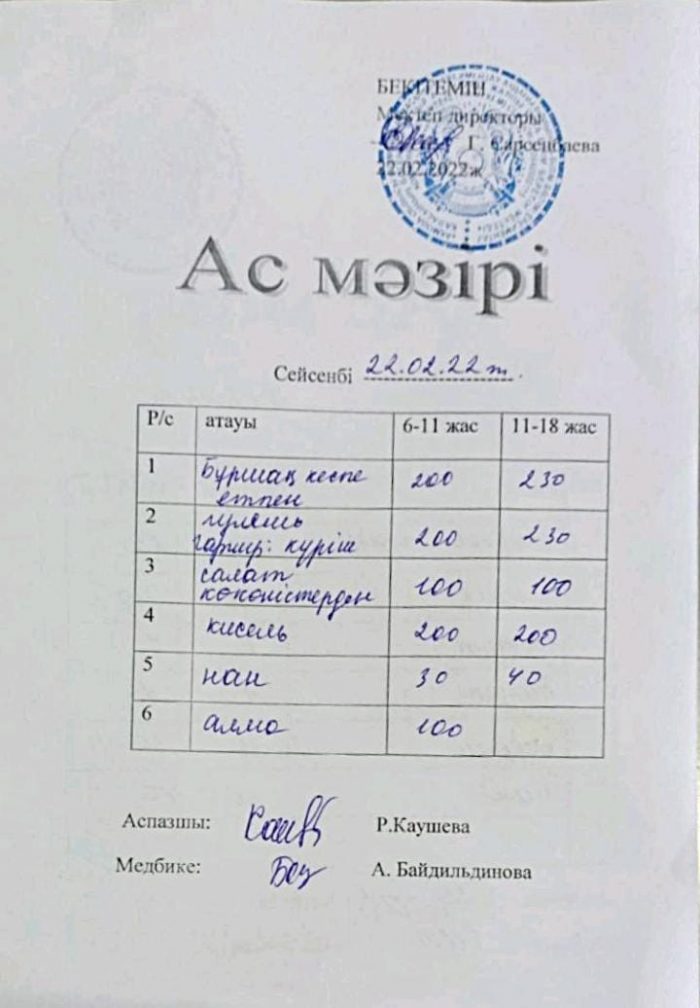 БЕКІТЕМІН
Мектеп директоры
Г. Сарсенбаева
22.02.2022ж
Ас мәзірі
Сейсенбі 22.02.22ж.
Р/с атауы 6-11 жас 11-18 жас
1 Бұршақ кеспе 200 230
етпен
2 гуляшь
гарнир: күріш 200 230
3 салат
көкөністерден 100 100
4 кисель 200 200
5 нан 30 40
6 алма 100
Аспазшы: Р.Каушева
Медбике: А. Байдильдинова